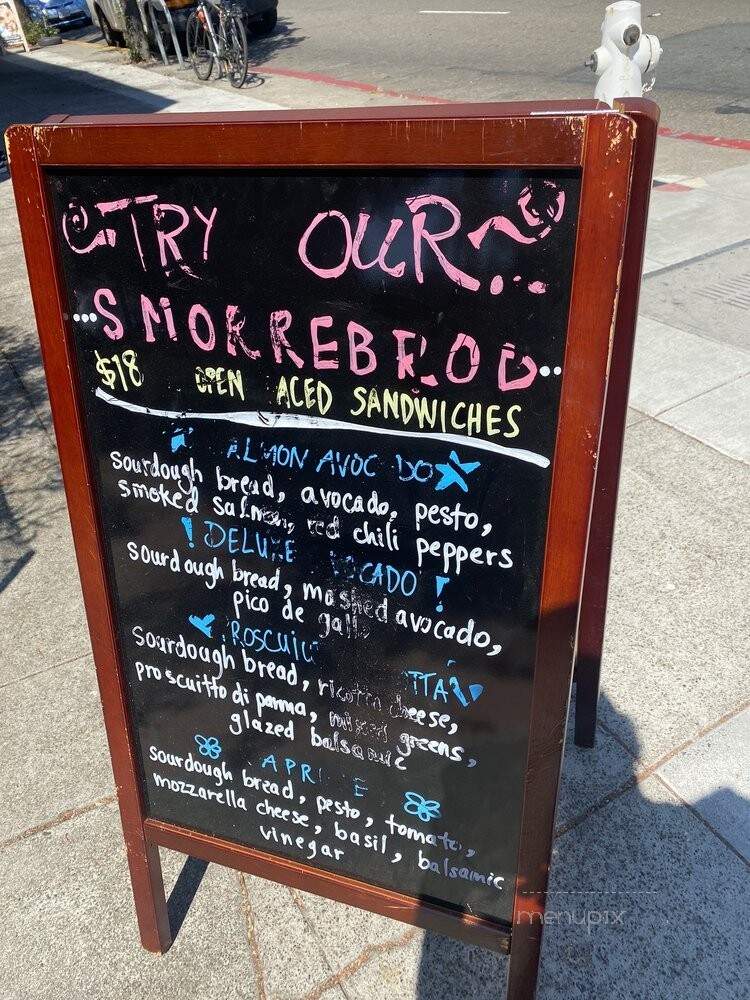 TRY OUR
...SMORREBROD..
$18 OPEN ACED SANDWICHES
ALMON AVOC DO
sourdough bread, avocado, pesto,
smoked salmon, red chili peppers
! DELUXE OCADO !
sourdough bread, mashed avocado,
pico de gallo
ROSCUIU TTA
sourdough bread, ricotta cheese,
proscuitto di parma, mixed greens,
glazed balsamic
APRI E
sourdough bread, pesto, tomato,
mozzarella cheese, basil, balsamic
vinegar
menupix